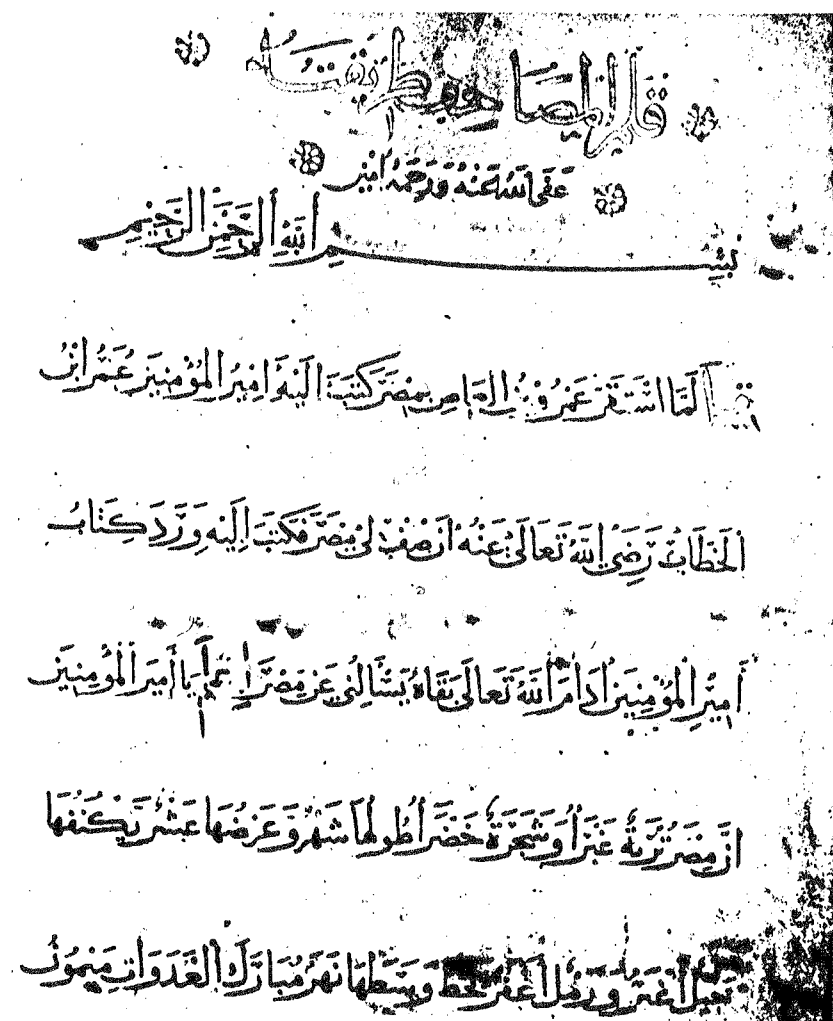 المصاحف وطريقته
عَفَى اللهُ عَنْهُ وَرَحِمَهُ امين
بِسْمِ اللهِ الرَّحْمٰنِ الرَّحِيْمِ
لَمَّا اسْتَقَرَّ عَمْرُو بْنُ العَاصِ بِمِصْرَ كَتَبَ الَيْهِ امِيْرُ المُؤْمِنِينَ عُمَرُ ابْنُ
الخَطَّابِ رَضِيَ اللهُ تَعَالَى عَنْهُ انْ صِفْ لِي مِصْرَ فَكَتَبَ اِلَيْهِ وَرَدَ كِتَابُ
أمِيْرِ المُؤْمِنِينَ أدَامَ اللهُ تَعَالَى بَقَاهُ يَسْئَالُنِي عَنْ مِصْرَ يَا أمِيرَ المُؤْمِنِينَ
انَّ مِصْرَ تُرْبَةٌ غَبْرَأُ وَشَجَرَةٌ خَضْرَأُ طُولُهَا شَهْرٌ وَعَرْضُهَا عَشْرٌ يَكْنُفُهَا
جَبَلٌ أغْبَرُ وَرَمْلٌ أعْفَرُ يَخُطُّ وَسَطَهَا نَهْرٌ مُبَارَكُ الغَدَوَاتِ مَيْمُونُ